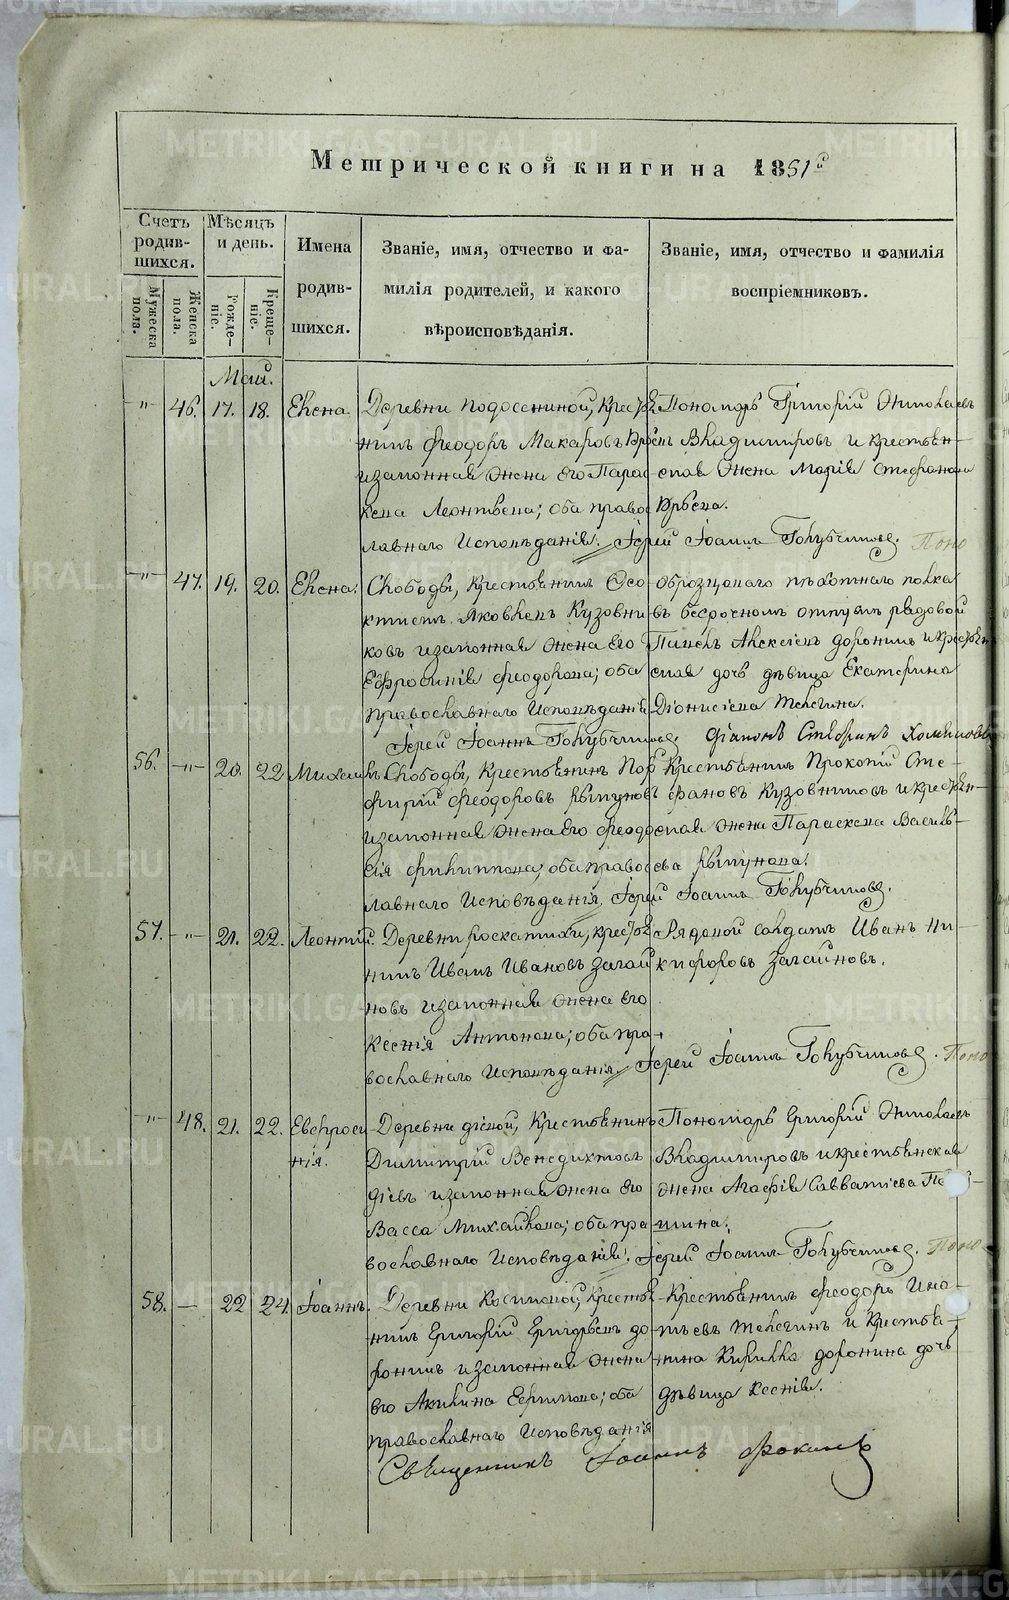 Метрической книги на 1851й
Счетъ родив-шихся.
Мужеска пола.
Женска пола.
Мѣсяцъ и день.
Рожде-ніе.
Креще-ніе.
Имена родив-шихся.
Званіе, имя, отчество и фа-
милія родителей, и какого
вѣроисповѣданія.
Званіе, имя, отчество и фамилія
воспріемниковъ.
Маій.
" 46. 17. 18. Елена.
Деревни крестья
нинъ Феодоръ Макаровъ
и законная жена его Парас
кева Леонтьева; оба право
славнаго Исповѣданія.
Пономарь Григорій Николаевъ
Владимировъ и крестьян-
ская жена Марія Стефанова
Іерей Іоаннъ Голубчиковъ. Поно
" 47. 19. 20. Елена.
Слободы, крестьянинъ Ѳео
ктистъ Яковлевъ Кузовни
ковъ и законная жена его
Ефросинія Феодорова; оба
православнаго Исповѣданія
Образцоваго пѣхотнаго полка
въ безсрочномъ отпускѣ рядовой
Павелъ Алексіевъ Доронинъ и крестьян
ская дочь дѣвица Екатерина
Діонисіева Телегина.
Іерей Іоаннъ Голубчиковъ.
56. " 20. 22. Михаилъ
Слободы, крестьянинъ Пор
фирій Феодоровъ
и законная жена его Феодо
сія Филиппова; оба право
славнаго Исповѣданія
Крестьянинъ Прокопій Сте-
фановъ Кузовниковъ и крестьян-
ская жена Параскева Василь-
ева
Іерей Іоаннъ Голубчиковъ.
57. " 21. 22. Леонтій.
Деревни крестья
нинъ Иванъ Ивановъ Загай
новъ и законная жена его
Ксенія Антонова; оба пра-
вославнаго Исповѣданія
Рядовой солдатъ Иванъ Ни-
кифоровъ Загайновъ.
Іерей Іоаннъ Голубчиковъ. Поно
" 48. 21. 22. Евфроси-
нія.
Деревни крестьянинъ
Димитрій Венедиктовъ
и законная жена его
Васса Михайлова; оба пра
вославнаго Исповѣданія.
Пономарь Григорій Николаевъ
Владимировъ и крестьянская
жена Агафія Савватіева
Іерей Іоаннъ Голубчиковъ. Поно
58. — 22 24. Іоаннъ.
Деревни крестья
нинъ Григорій Григорьевъ До
ронинъ и законная жена
его Акилина Ефимова; оба
православнаго Исповѣданія
Крестьянинъ Феодоръ Игна-
тьевъ Телегинъ и крестья-
нина Кирилла Доронина дочь
дѣвица Ксенія.
Священникъ Іоаннъ Фокинъ
METRIKI.GASO-URAL.RU